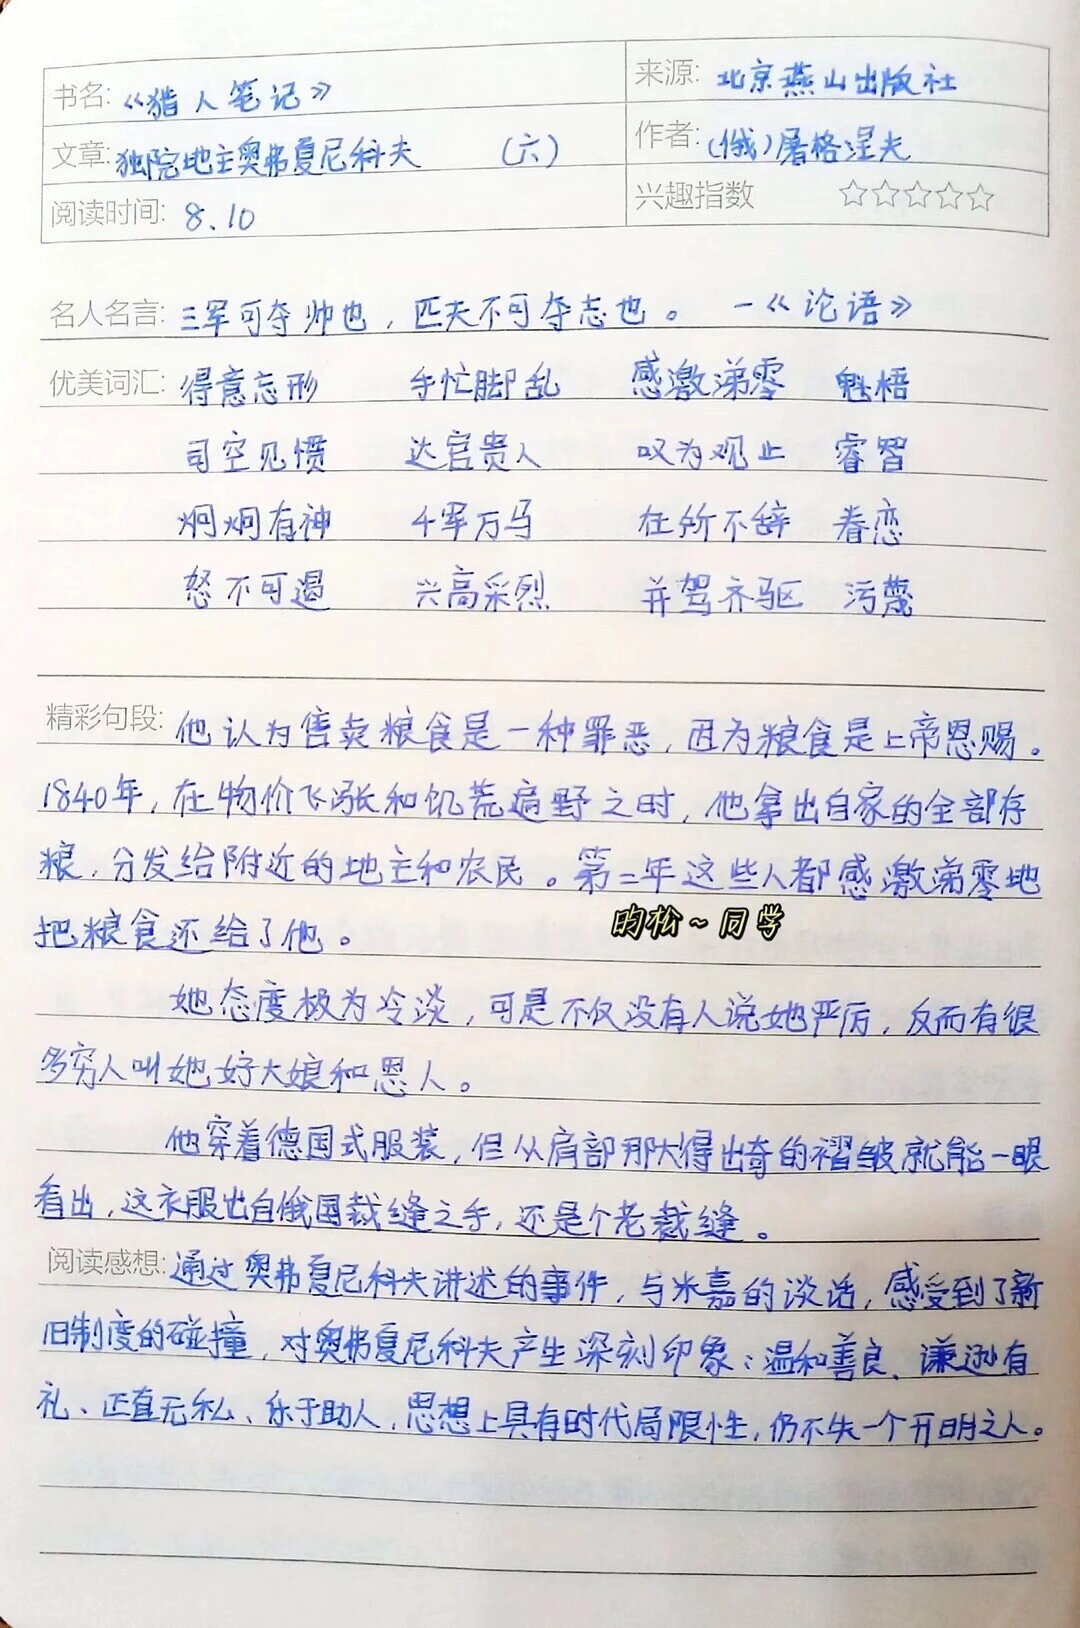 书名: 《猎人笔记》 来源: 北京燕山出版社
文章: 独院地主奥弗夏尼科夫 (六) 作者: (俄)屠格涅夫
阅读时间: 8.10 兴趣指数 ☆☆☆☆☆
名人名言: 三军可夺帅也，匹夫不可夺志也。 —《论语》
优美词汇: 得意忘形 手忙脚乱 感激涕零 魁梧
司空见惯 达官贵人 叹为观止 睿智
炯炯有神 千军万马 在所不辞 眷恋
怒不可遏 兴高采烈 并驾齐驱 污蔑
精彩句段: 他认为售卖粮食是一种罪恶，因为粮食是上帝恩赐。
1840年，在物价飞涨和饥荒遍野之时，他拿出自家的全部存
粮，分发给附近的地主和农民。第二年这些人都感激涕零地
把粮食还给了他。
昀松~同学
她态度极为冷淡，可是不仅没有人说她严厉，反而有很
多穷人叫她好大娘和恩人。
他穿着德国式服装，但从肩部那大得出奇的褶皱就能一眼
看出，这衣服出自俄国裁缝之手，还是个老裁缝。
阅读感想: 通过奥弗夏尼科夫讲述的事件，与米嘉的谈话，感受到了新
旧制度的碰撞，对奥弗夏尼科夫产生深刻印象：温和善良、谦逊有
礼、正直无私、乐于助人，思想上具有时代局限性，仍不失一个开明之人。